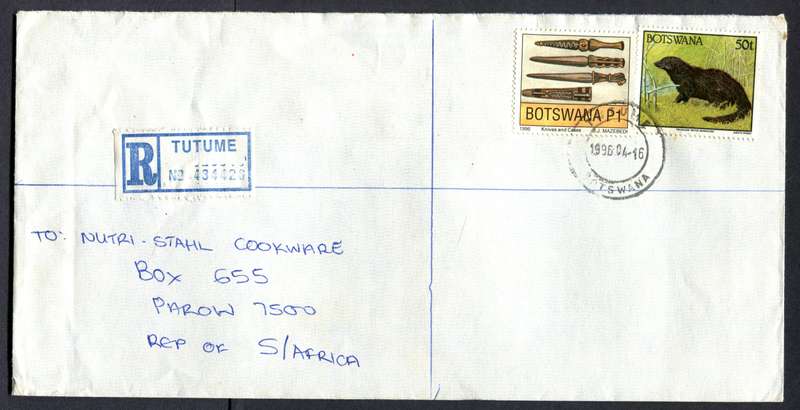 BOTSWANA 50t
BOTSWANA P1
1996 Knives and Cases B.J. MAZEBEDI
1996.04.16
BOTSWANA
R TUTUME
No 434426
TO: NUTRI-STAHL COOKWARE
BOX 655
PAROW 7500
REP OF S/AFRICA